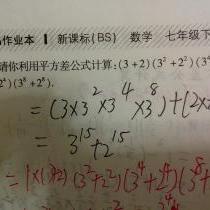 作业本 | 新课标(BS) 数学 七年级下
请你利用平方差公式计算:(3+2)(3²+2²)(3⁴
2⁴)(3⁸+2⁸).
=(3×3²×3⁴×3⁸)+(2×
=3¹⁵+2¹⁵
=1×(3+2)(3²+2²)(3⁴+2⁴)(3⁸+